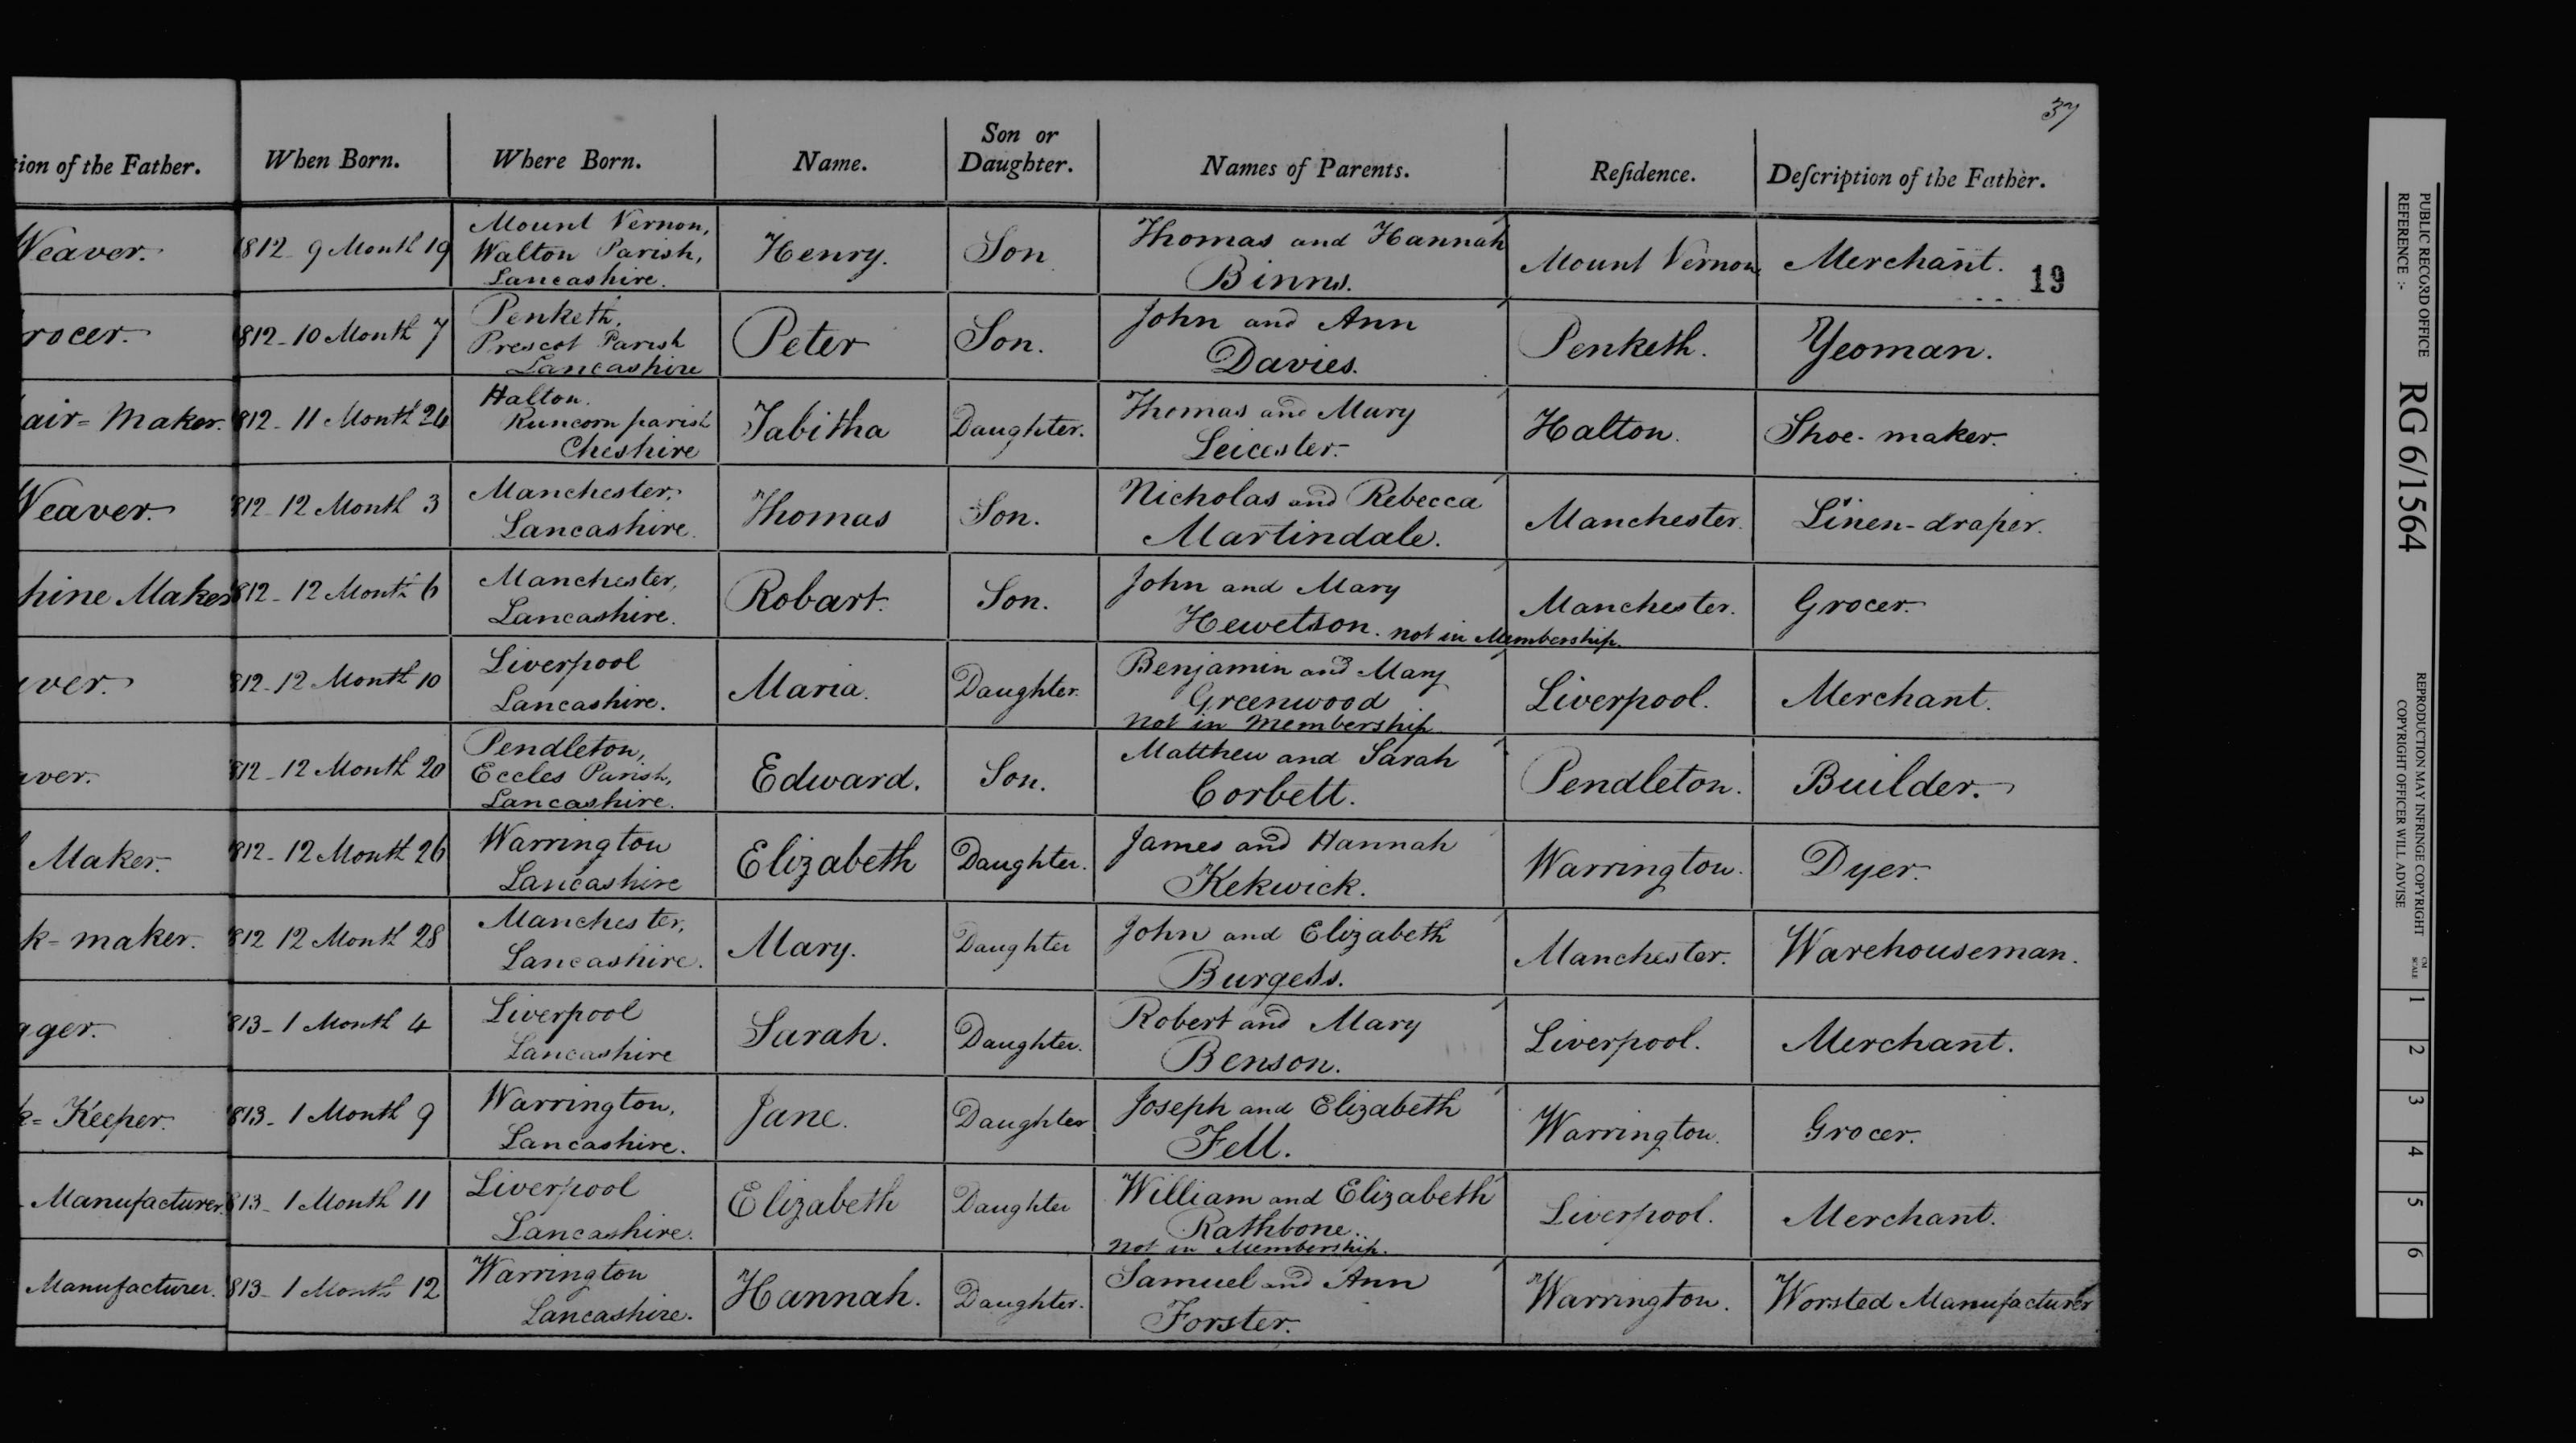 37
tion of the Father.
When Born.
Where Born.
Name.
Son or
Daughter.
Names of Parents.
Reſidence.
Deſcription of the Father.
Weaver.
1812 - 9 Month 19
Mount Vernon,
Walton Parish,
Lancashire.
Henry.
Son
Thomas and Hannah
Binns.
Mount Vernon
Merchant.
19
rocer.
1812 - 10 Month 7
Penketh,
Prescot Parish
Lancashire
Peter
Son.
John and Ann
Davies.
Penketh.
Yeoman.
air = Maker.
1812 - 11 Month 24
Halton.
Runcorn parish
Cheshire
Tabitha
Daughter.
Thomas and Mary
Leicester.
Halton.
Shoe - maker.
Weaver.
812 - 12 Month 3
Manchester,
Lancashire.
Thomas
Son.
Nicholas and Rebecca
Martindale.
Manchester.
Linen - draper.
hine Maker
812 - 12 Month 6
Manchester,
Lancashire.
Robart.
Son.
John and Mary
Hewetson. not in Membership.
Manchester.
Grocer.
ver.
812 - 12 Month 10
Liverpool
Lancashire.
Maria.
Daughter.
Benjamin and Mary
Greenwood
not in membership
Liverpool.
Merchant.
ver.
812 - 12 Month 20
Pendleton,
Eccles Parish,
Lancashire.
Edward.
Son.
Matthew and Sarah
Corbett.
Pendleton.
Builder.
Maker.
812 - 12 Month 26
Warrington
Lancashire
Elizabeth
Daughter.
James and Hannah
Kekwick.
Warrington.
Dyer.
k = maker.
812 12 Month 28
Manchester,
Lancashire.
Mary.
Daughter
John and Elizabeth
Burgess.
Manchester.
Warehouseman.
gger.
813 - 1 Month 4
Liverpool
Lancashire
Sarah.
Daughter.
Robert and Mary
Benson.
Liverpool.
Merchant.
k = Keeper.
813 - 1 Month 9
Warrington,
Lancashire.
Jane.
Daughter
Joseph and Elizabeth
Fell.
Warrington.
Grocer.
Manufacturer.
813 - 1 Month 11
Liverpool
Lancashire.
Elizabeth
Daughter
William and Elizabeth
Rathbone.
not in Membership.
Liverpool.
Merchant.
Manufacturer.
813 - 1 Month 12
Warrington
Lancashire.
Hannah.
Daughter.
Samuel and Ann
Forster.
Warrington.
Worsted Manufacturer
PUBLIC RECORD OFFICE
REFERENCE :-
RG 6/1564
REPRODUCTION MAY INFRINGE COPYRIGHT
COPYRIGHT OFFICER WILL ADVISE
CM
SCALE
1
2
3
4
5
6